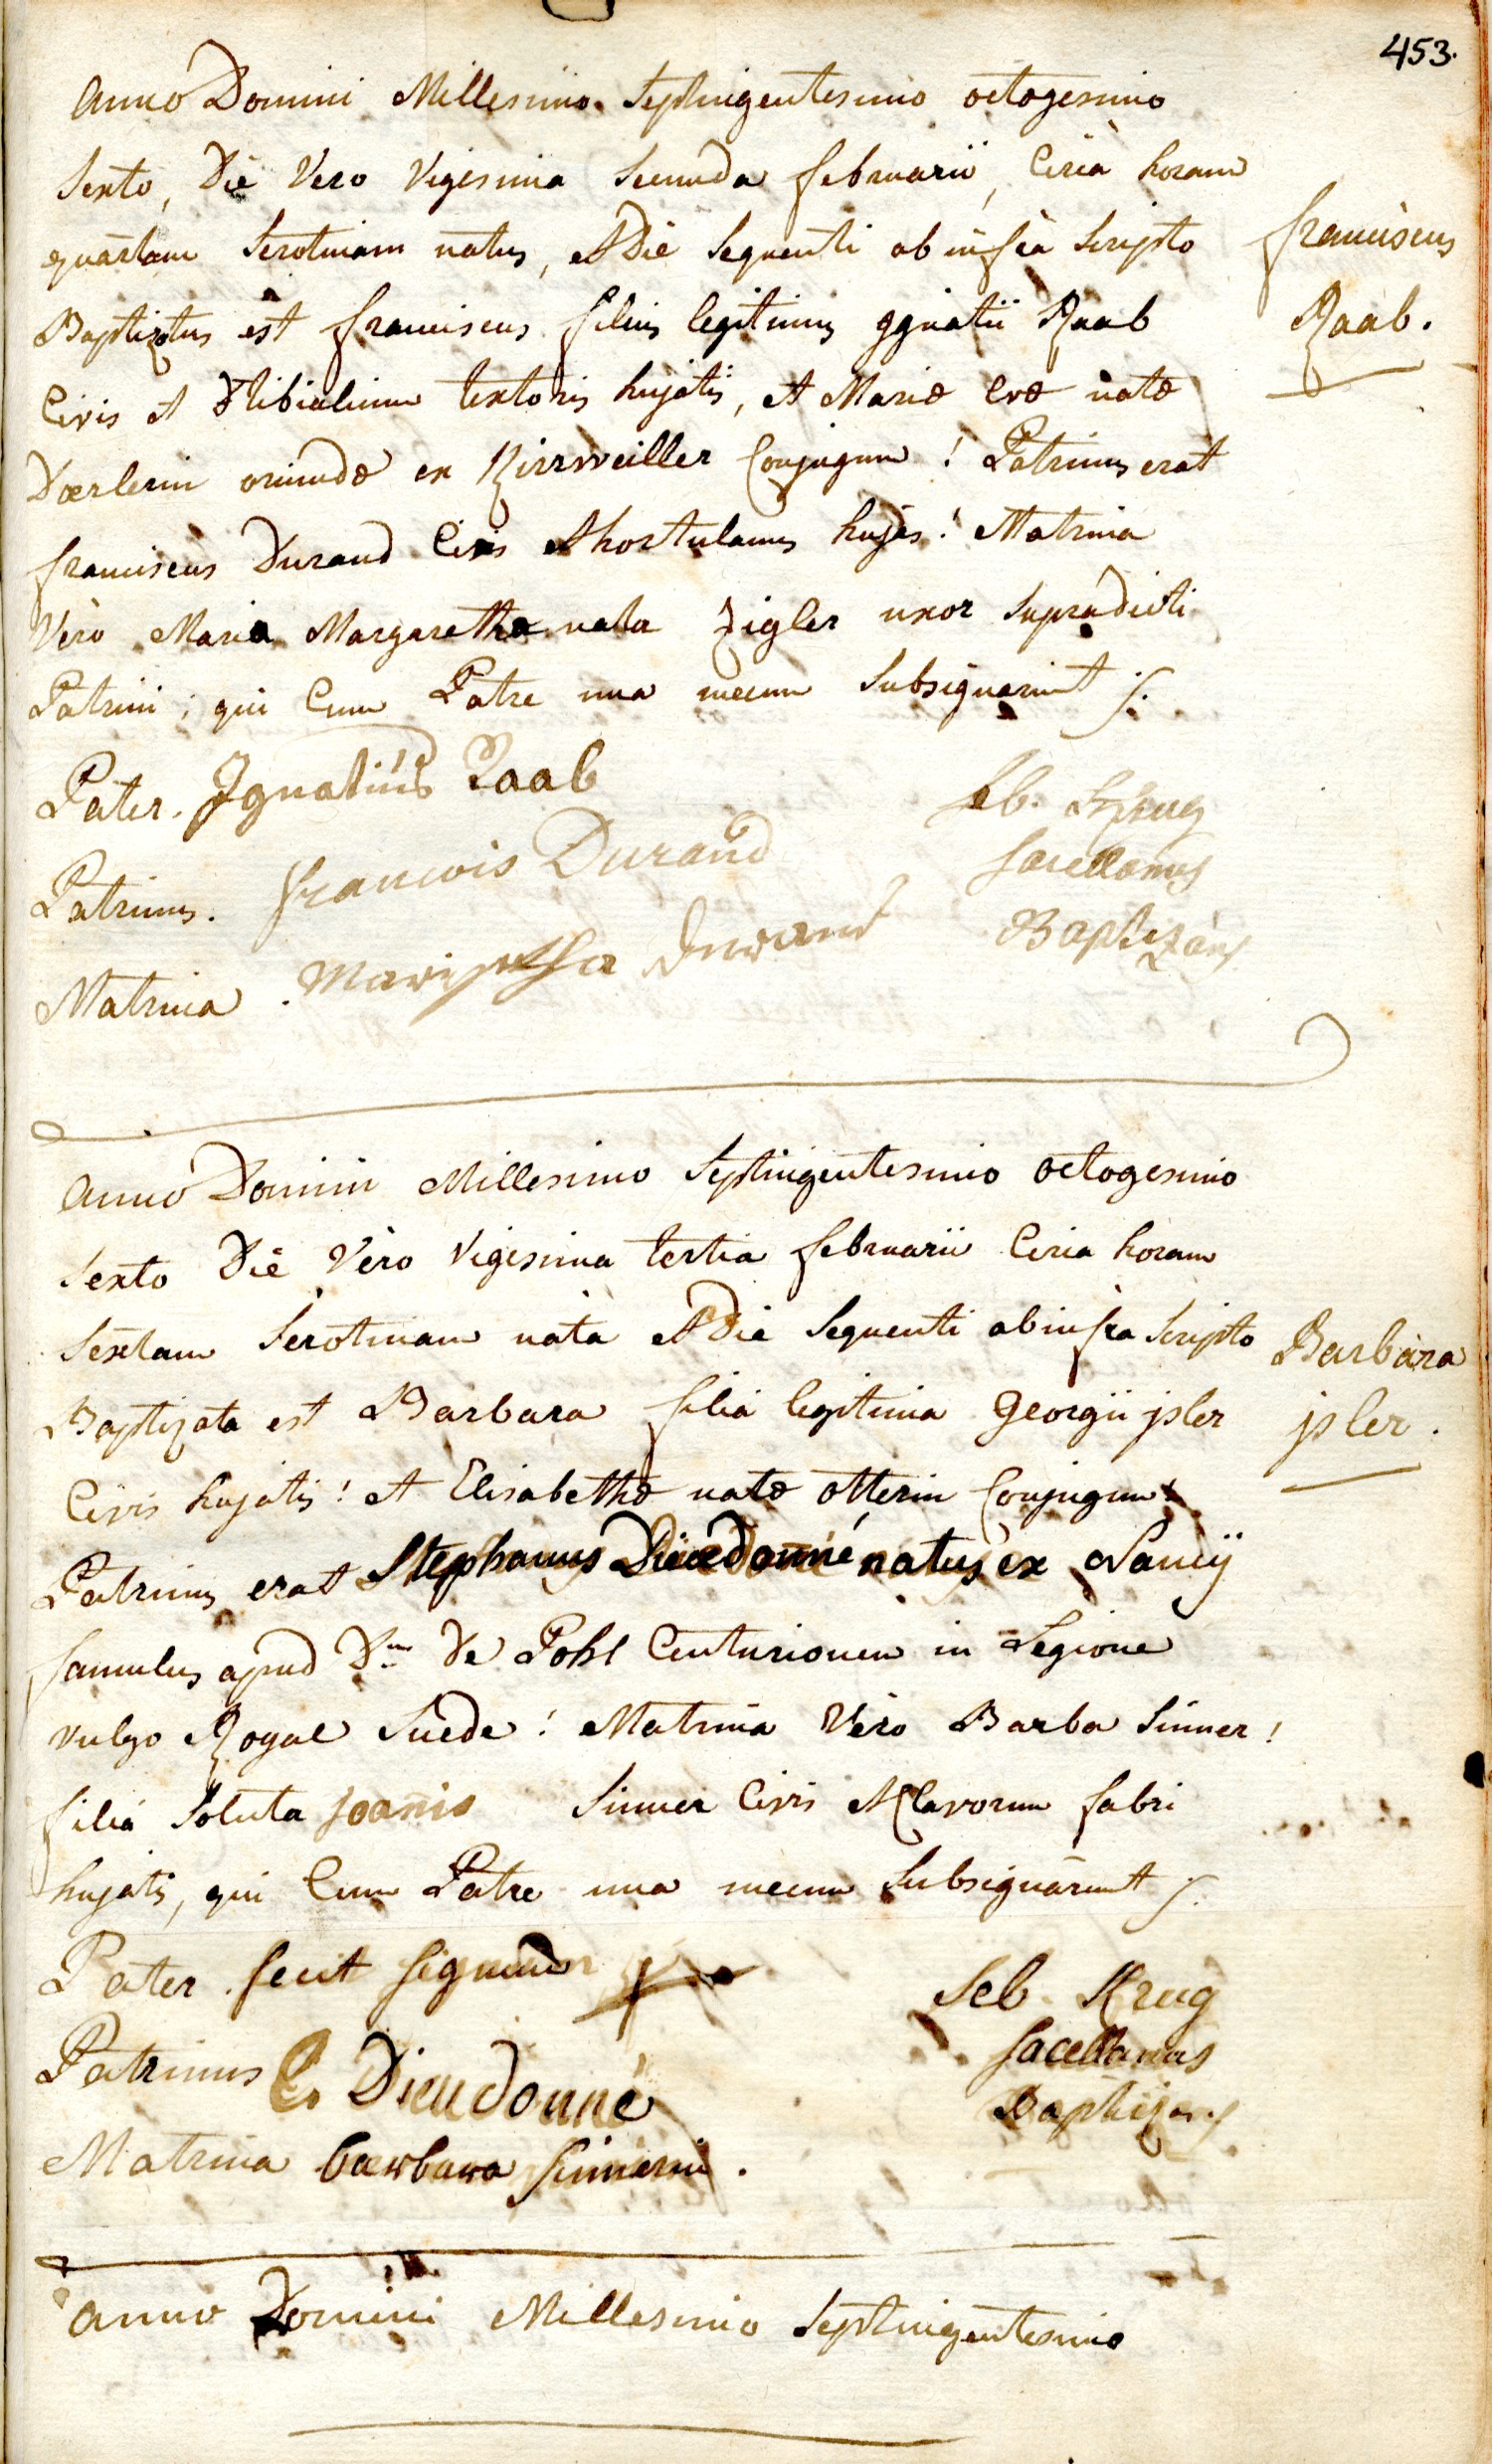 453.
Anno Domini Millesimo Septingentesimo octogesimo
Sexto, Die Vero Vigesima Secunda februarii, Circa horam
quartam Serotinam natus, et Die Sequenti ab infra Scripto
franciscus
Baptizatus est franciscus filius legitimus ygnatii Raab
Raab.
Civis et tibialium textoris hujatis, et Mariæ Evæ natæ
Dœrlerin oriundæ ex Kirrweiller Conjugum! Patrinus erat
franciscus Durand Civis et hortulanus hujas! Matrina
Vero Maria Margaretha nata Zigler uxor Supradicti
Patrini; qui Cum Patre una mecum Subsignarunt
Pater. Ignatius Raab
Seb. Krug
Patrinus. francois Durand
Sacellanus
Matrina. Durand
Baptizans
Anno Domini Millesimo Septingentesimo octogesimo
Sexto Die Vero Vigesima tertia februarii Circa horam
Sextam Serotinam nata et Die Sequenti ab infra Scripto
Barbara
Baptizata est Barbara filia legitima Georgii jsler
jsler.
Civis hujatis! et Elisabethæ natæ otterin Conjugum!
Patrinus erat Stephanus Dieudonné natus ex Nancij
famulus apud Dnm De Pohl Centurionem in Legione
vulgo Royal Suede! Matrina Vero Barba Sinner!
filia Soluta Joanis Sinner Civis et Clavorum fabri
hujatis, qui Cum Patre una mecum Subsignarunt
Pater fecit Signum
Seb. Krug
Patrinus Dieudonné
Sacellanus
Baptizans
Matrina barbara Sinnerin.
Anno Domini Millesimo Septingentesimo